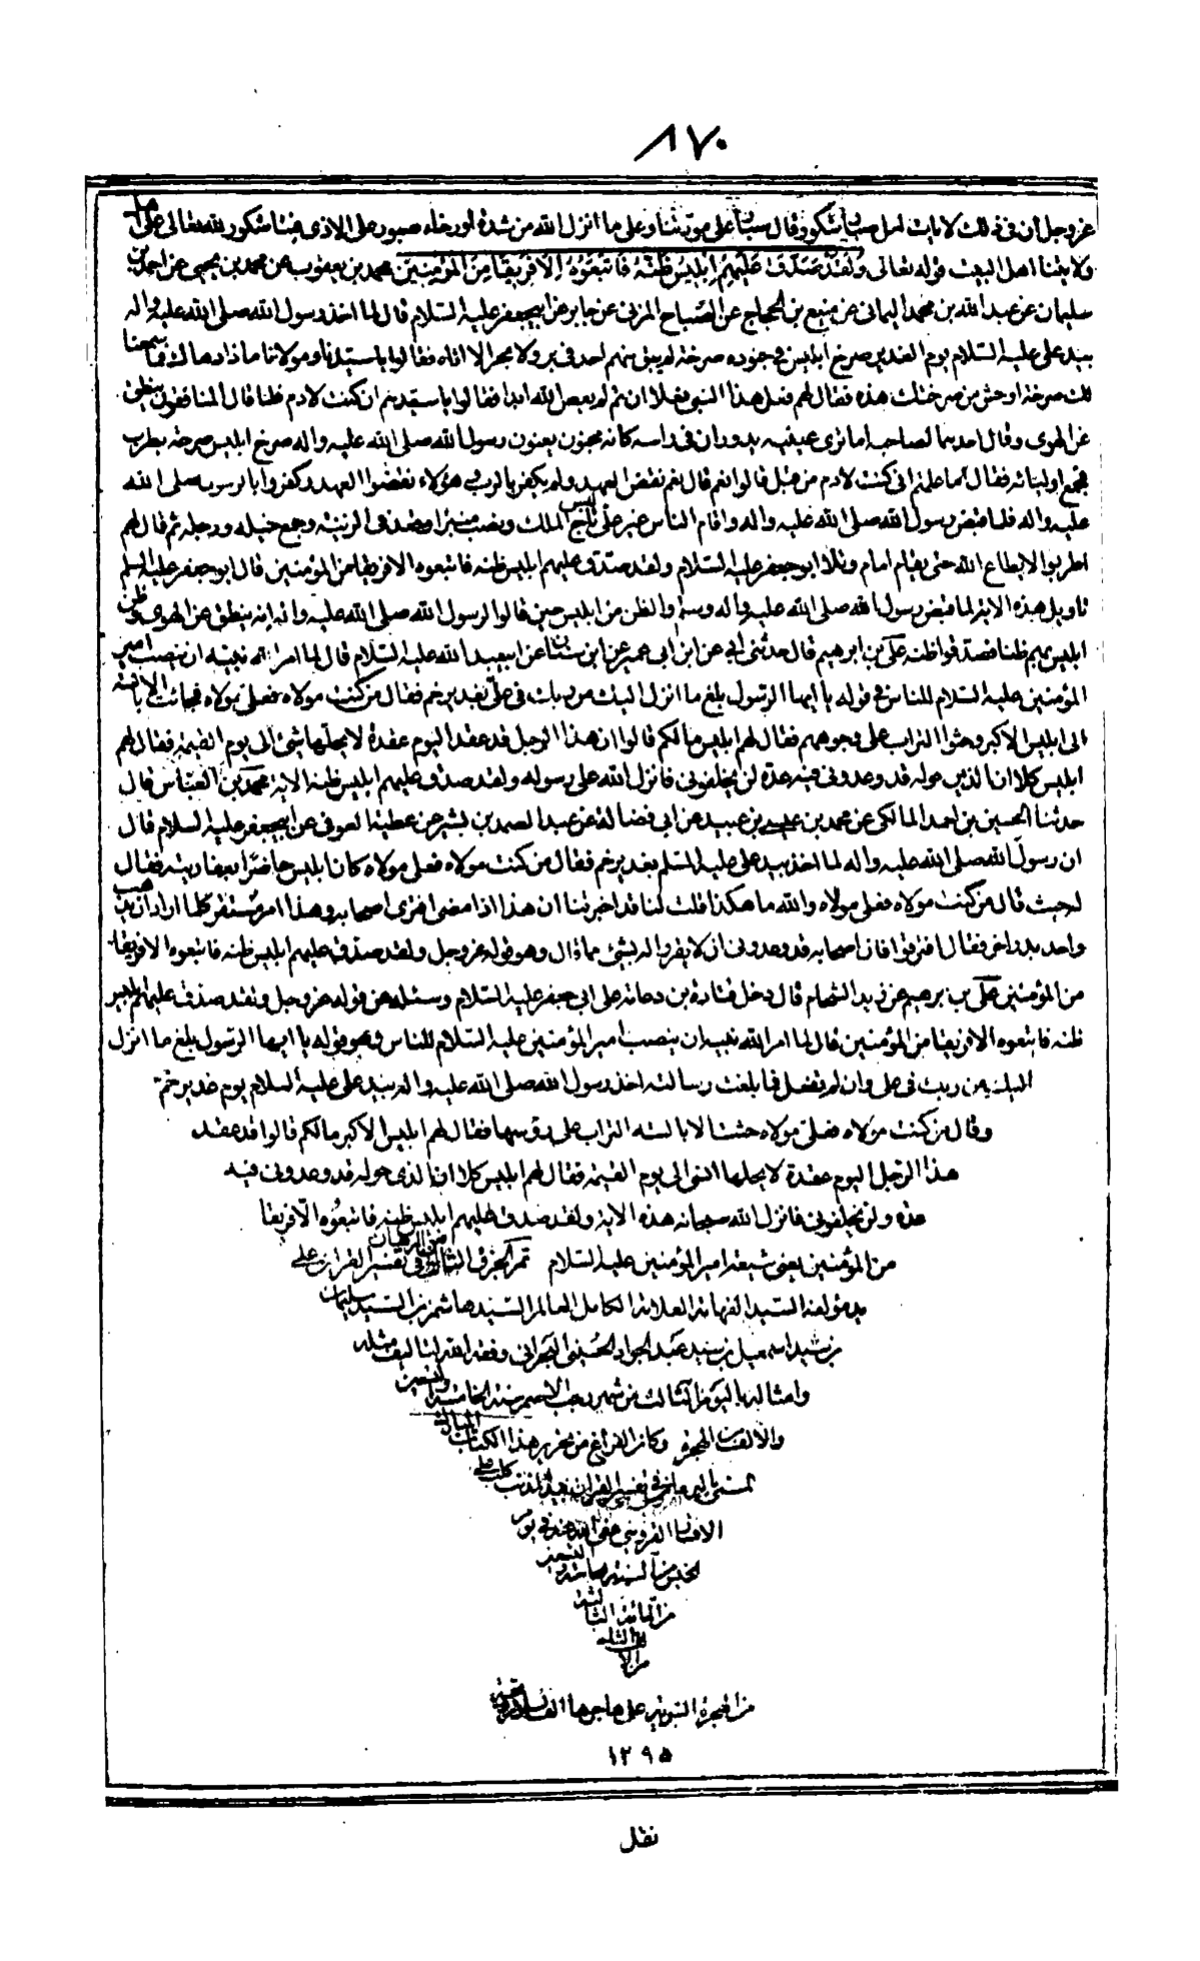 ٨٧٠
عز وجل ان فى ذلك لايات لكل صبار شكور وقال صبار على مودتنا وعلى ما انزل الله من شدة او رخاء صبور على الاذى فينا شكور لله تعالى على
ولايتنا اهل البيت قوله تعالى ولقد صدق عليهم ابليس ظنه فاتبعوه الا فريقا من المؤمنين محمد بن يعقوب عن محمد بن يحيى عن احمد بن
سليمان عن عبد الله بن محمد اليمانى عن منيع بن الحجاج عن الصباح المزنى عن جابر عن ابيجعفر عليه السلام قال لما اخذ رسول الله صلى الله عليه واله
بيد على عليه السلام يوم الغدير صرخ ابليس فى جنوده صرخة لم يبق منهم احد فى بر ولا بحر الا اتاه فقالوا يا سيدنا ومولانا ماذا دهاك فما سمعنا
لك صرخة اوحش من صرختك هذه فقال لهم فعل هذا النبى فعلا ان تم لم يعص الله ابدا فقالوا يا سيدهم ان كنت لادم فلما قال المنافقون ينطق
عن الهوى وقال احدهما لصاحبه اما ترى عينيه يدوران فى راسه كانه مجنون يعنون رسول الله صلى الله عليه واله صرخ ابليس صرخة بطرب
فجمع اوليائه فقال اما علمتم انى كنت لادم من قبل قالوا نعم قال نعم نقض العهد ولم يكفر بالرب وهؤلاء نقضوا العهد وكفروا بالرسول صلى الله
عليه واله فلما قبض رسول الله صلى الله عليه واله واقام الناس غير على لبس تاج الملك ونصب منبرا وقعد فى الزينة وجمع خيله ورجله ثم قال لهم
اطربوا لا يطاع الله حتى يقام امام وتلا ابو جعفر عليه السلام ولقد صدق عليهم ابليس ظنه فاتبعوه الا فريقا من المؤمنين قال ابو جعفر عليه السلم
تاويل هذه الاية لما قبض رسول الله صلى الله عليه واله وسلم والظن من ابليس حين قالوا لرسول الله صلى الله عليه واله انه ينطق عن الهوى وظن
ابليس بهم ظنا فصدقوا ظنه على بن ابرهيم قال حدثنى ابى عن ابن ابى عمير عن ابن سنان عن ابيعبد الله عليه السلام قال لما امر الله نبيه ان ينصب امير
المؤمنين عليه السلام للناس فى قوله يا ايها الرسول بلغ ما انزل اليك من ربك فى على بغدير خم فقال من كنت مولاه فعلى مولاه فجائت الابالسة
الى ابليس الاكبر وحثوا التراب على وجوههم فقال لهم ابليس مالكم قالوا ان هذا الرجل قد عقد اليوم عقدة لا يحلها شئ الى يوم القيمة فقال لهم
ابليس كلا ان الذين حوله قد وعدونى فيه عدة لن يخلفونى فانزل الله على رسوله ولقد صدق عليهم ابليس ظنه الاية محمد بن العباس قال
حدثنا الحسين بن احمد المالكى عن محمد بن عيسى بن عبيد عن ابى فضالة عن عبد الصمد بن بشير عن عطية العوفى عن ابيجعفر عليه السلام قال
ان رسول الله صلى الله عليه واله لما اخذ بيد على عليه السلم بغدير خم فقال من كنت مولاه فعلى مولاه كان ابليس حاضرا بعفاريته فقال
له حيث قال من كنت مولاه فعلى مولاه والله ما هكذا قلت لنا قد اخبرتنا ان هذا اذا مضى افترق اصحابه وهذا امر مستقر كلما اراد ان يذهب
واحد بدر اخر فقال افترقوا فان اصحابه قد وعدونى ان لا يقروا له بشئ مما قال وهو قوله عز وجل ولقد صدق عليهم ابليس ظنه فاتبعوه الا فريقا
من المؤمنين على بن ابرهيم عن زيد الشحام قال دخل قتادة بن دعامة على ابى جعفر عليه السلام وسئله عن قوله عز وجل ولقد صدق عليهم ابليس
ظنه فاتبعوه الا فريقا من المؤمنين قال لما امر الله نبيه ان ينصب امير المؤمنين عليه السلام للناس وهو قوله يا ايها الرسول بلغ ما انزل
اليك من ربك فى على وان لم تفعل فما بلغت رسالته اخذ رسول الله صلى الله عليه واله بيد على عليه السلام يوم غدير خم
وقال من كنت مولاه فعلى مولاه حثت الابالسة التراب على رؤسها فقال لهم ابليس الاكبر مالكم قالوا قد عقد
هذا الرجل اليوم عقدة لا يحلها انسى الى يوم القيمة فقال لهم ابليس كلا ان الذى حوله قد وعدونى فيه
عدة ولن يخلفونى فانزل الله سبحانه هذه الاية ولقد صدق عليهم ابليس ظنه فاتبعوه الا فريقا
من المؤمنين يعنى شيعة امير المؤمنين عليه السلام تم الجزء الثالث من البرهان فى تفسير القران على
يد مؤلفه السيد الفهامة العلامة الكامل العالم السيد هاشم بن السيد سليمان
بن سيد اسمعيل بن سيد عبد الجواد الحسينى البحرانى وفقه الله لتاليف مثله
وامثاله باليوم الثالث من شهر رجب الاصم سنة الخامسة والتسعين
والالف من الهجرة وكان الفراغ من تحرير هذا الكتاب المبارك
المسمى بالبرهان فى تفسير القران بيد المذنب كلب على
الافشار القزوينى عفى الله عنه فى يوم
الخميس من السنة الخامسة والتسعين
من المائة الثالثة
من الالف الثانى
من الهجرة النبوية على هاجرها الف سلام وتحية
١٢٩٥
نقل